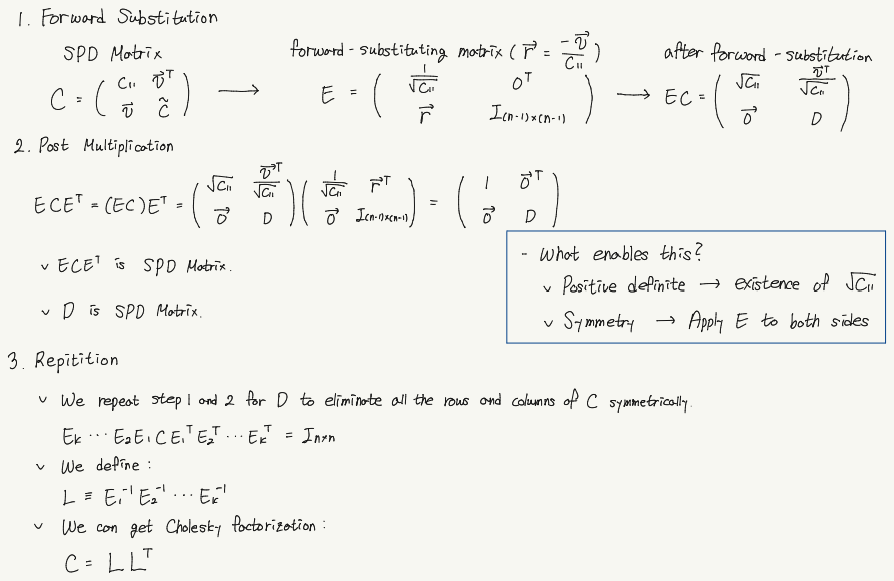 1. Forward Substitution
SPD Matrix
C = ( C₁₁ v⃗ᵀ ; v⃗ C̃ )
⟶
forward-substituting matrix ( r⃗ = -v⃗/C₁₁ )
E = ( 1/√C₁₁ 0ᵀ ; r⃗ I(n-1)×(n-1) )
⟶
after forward-substitution
EC = ( √C₁₁ v⃗ᵀ/√C₁₁ ; 0⃗ D )
2. Post Multiplication
ECEᵀ = (EC)Eᵀ = ( √C₁₁ v⃗ᵀ/√C₁₁ ; 0⃗ D ) ( 1/√C₁₁ r⃗ᵀ ; 0⃗ I(n-1)×(n-1) ) = ( 1 0⃗ᵀ ; 0⃗ D )
v ECEᵀ is SPD Matrix.
v D is SPD Matrix.
- What enables this?
v Positive definite → existence of √C₁₁
v Symmetry → Apply E to both sides
3. Repitition
v We repeat step 1 and 2 for D to eliminate all the rows and columns of C symmetrically.
Eₖ ⋯ E₂E₁CE₁ᵀE₂ᵀ ⋯ Eₖᵀ = Iₙₓₙ
v We define :
L ≡ E₁⁻¹E₂⁻¹ ⋯ Eₖ⁻¹
v We can get Cholesky factorization :
C = LLᵀ